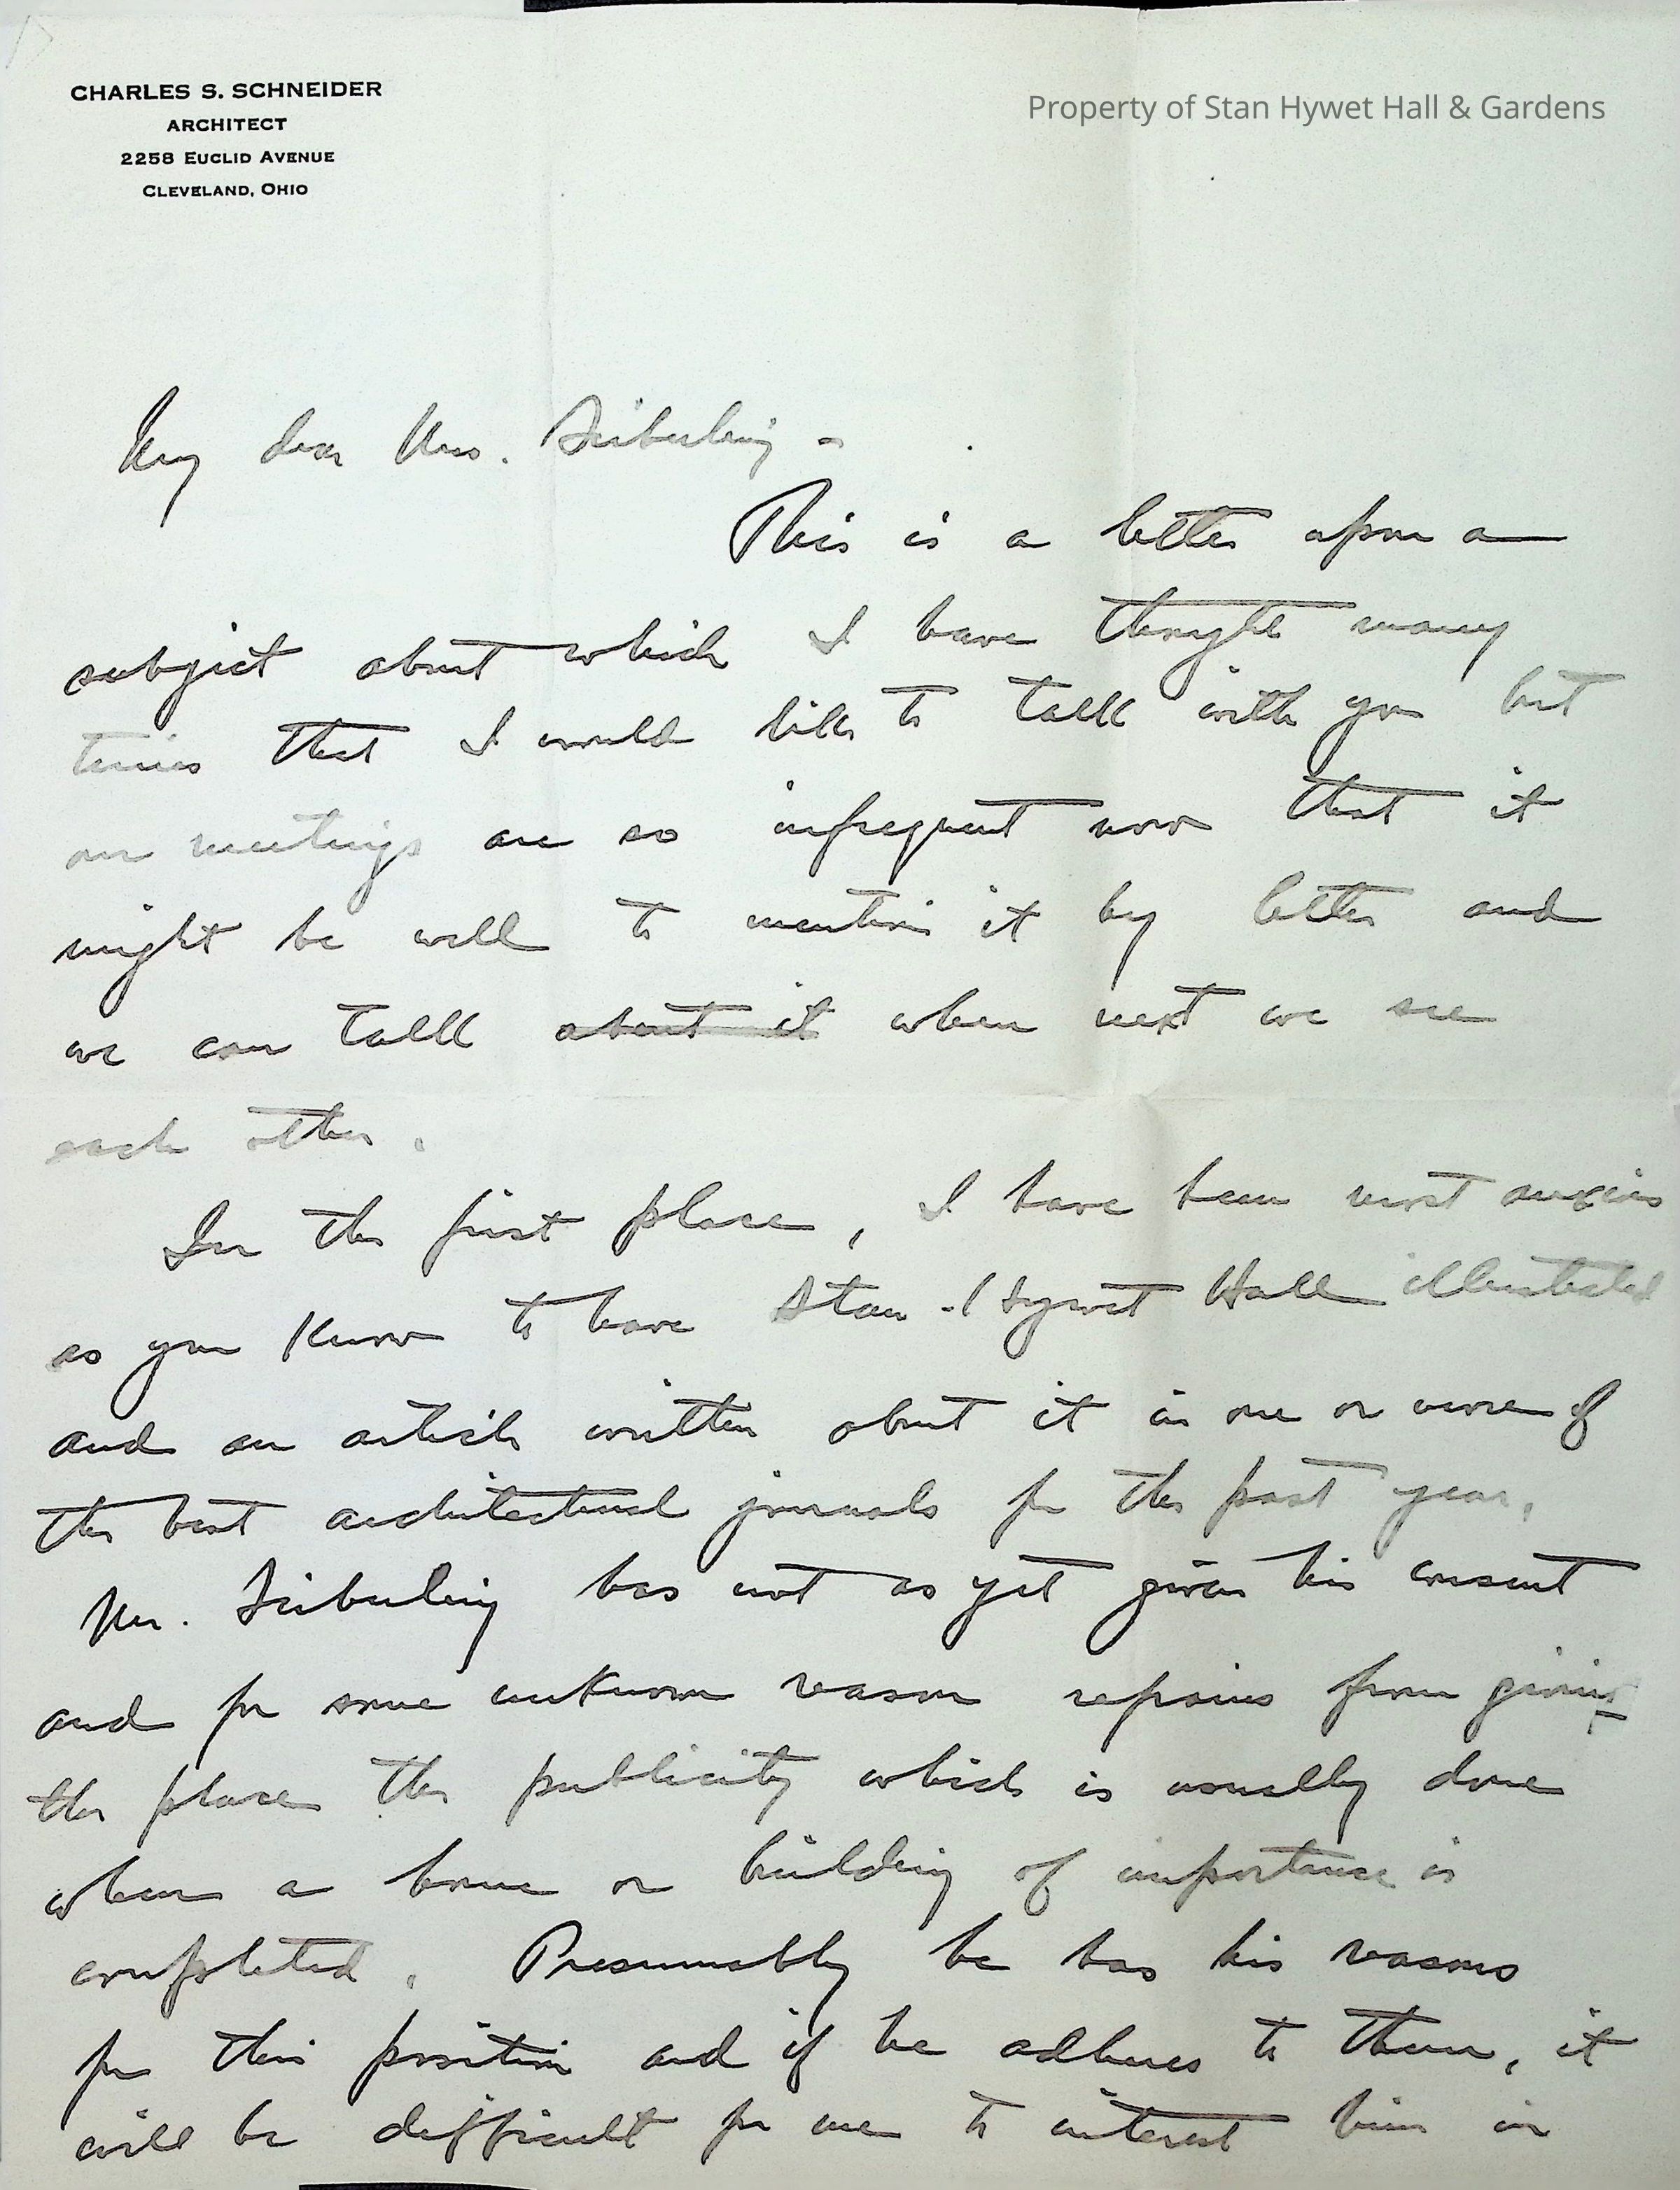 CHARLES S. SCHNEIDER
ARCHITECT
2258 EUCLID AVENUE
CLEVELAND, OHIO
Property of Stan Hywet Hall & Gardens
My dear Mrs. Seiberling -
This is a letter upon a
subject about which I have thought many
times that I would like to talk with you but
our meetings are so infrequent now that it
might be well to mention it by letter and
we can talk about it when next we see
each other.
In the first place, I have been most anxious
as you know to have Stan-Hywet Hall illustrated
and an article written about it in one or more of
the best architectural journals for the past year.
Mr. Seiberling has not as yet given his consent
and for some unknown reason refrains from giving
the place the publicity which is usually done
when a home or building of importance is
completed. Presumably he has his reasons
for this position and if he adheres to them, it
will be difficult for me to interest him in